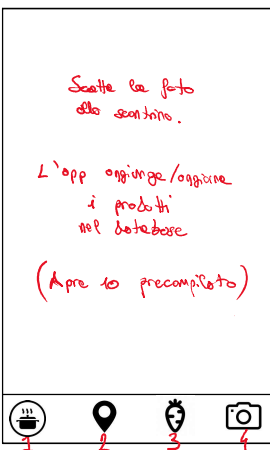 Scatta la foto
allo scontrino.
L'app aggiunge/aggiorna
i prodotti
nel database
(Apre lo precompilato)
1 2 3 4